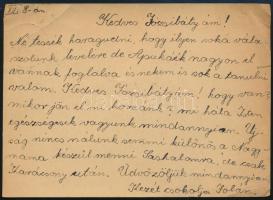 Kedves Jocsibátyám!
Ne tessék haragudni, hogy ilyen soká vála-
szolunk levelére de Apukáék nagyon el
vannak foglalva és nekem is sok a tanulni
valóm. Kedves Jocsibátyám! hogy van?
mikor jön el mihozzánk? mi hála Isten
egészségesek vagyunk mindannyian. Új-
ság nincs nálunk semmi különös a Nagy-
mama készül menni Sashalomra, de csak
Karácsony után. Üdvözöljük mindannyian
Kezét csókolja Jolán